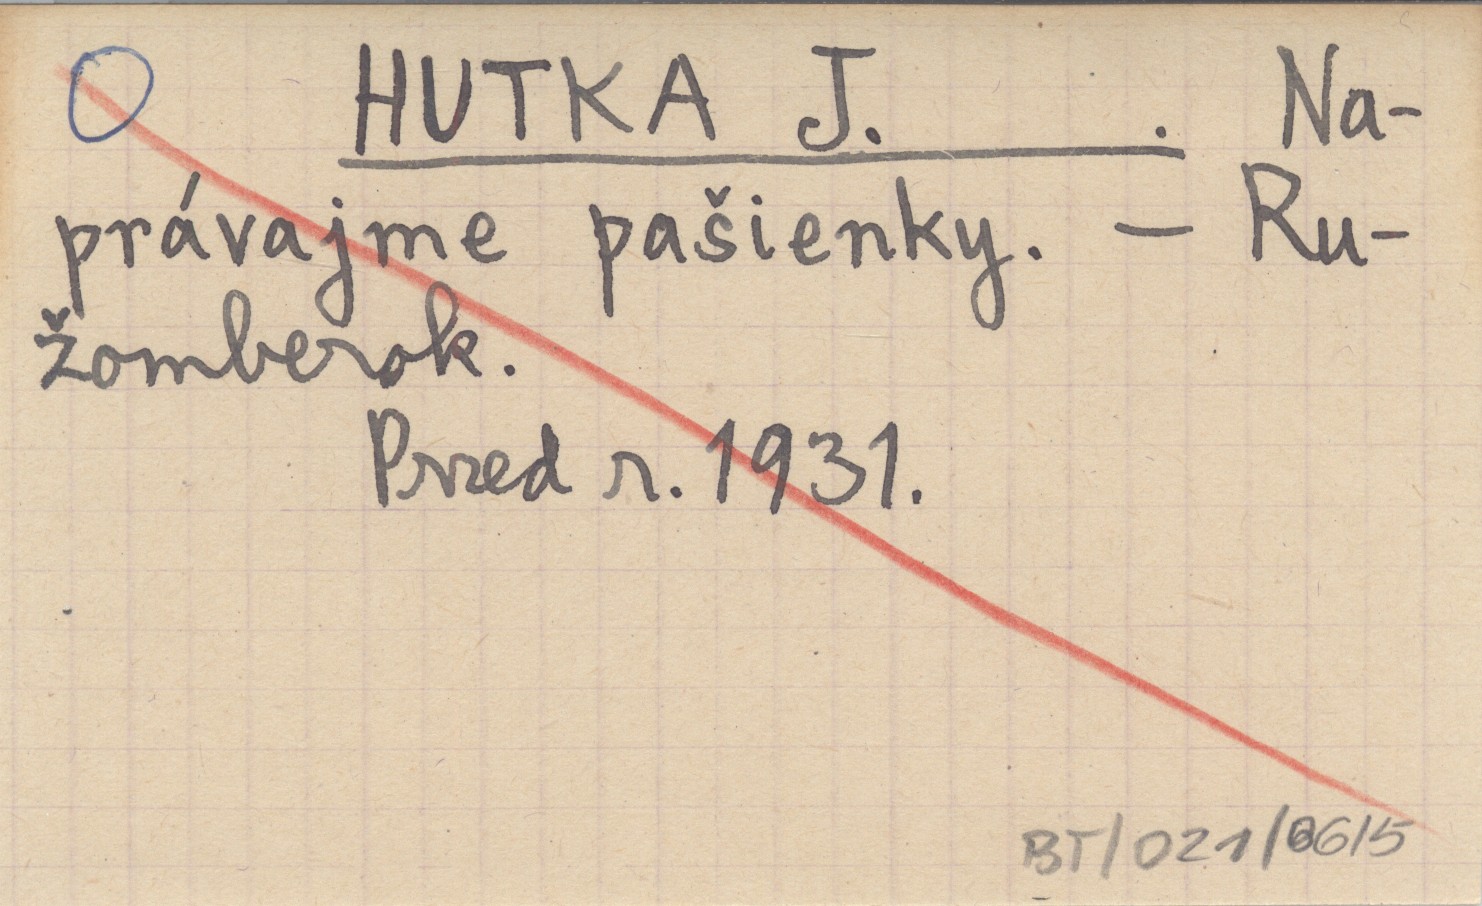 HUTKA J. . Na-
právajme pašienky. – Ru-
žomberok.
Pred r. 1931.
BT/021/8615